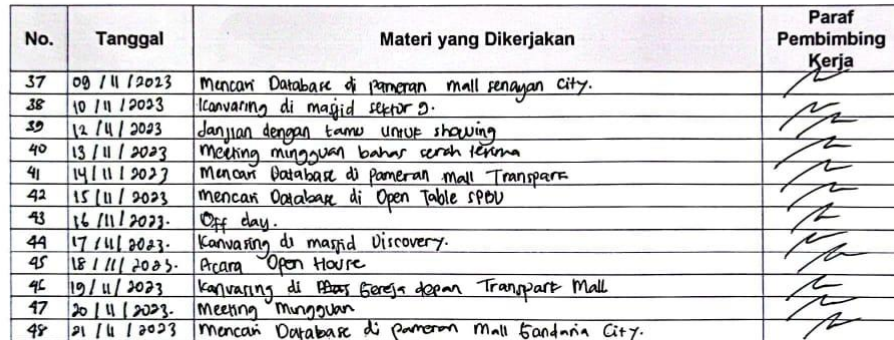 No. Tanggal Materi yang Dikerjakan Paraf Pembimbing Kerja
37 09/11/2023 Mencari Database di pameran mall senayan City.
38 10/11/2023 Kanvasing di masjid sektor 9.
39 12/11/2023 Janjian dengan tamu untuk showing
40 13/11/2023 Meeting mingguan bahas serah terima
41 14/11/2023 Mencari Database di Pameran mall Transpark
42 15/11/2023 Mencari Database di Open Table SPBU
43 16/11/2023. Off day.
44 17/11/2023. Kanvasing di masjid Discovery.
45 18/11/2023. Acara Open House
46 19/11/2023 Kanvasing di Gereja depan Transpark Mall
47 20/11/2023. Meeting Mingguan
48 21/11/2023 Mencari Database di pameran Mall Gandaria City.